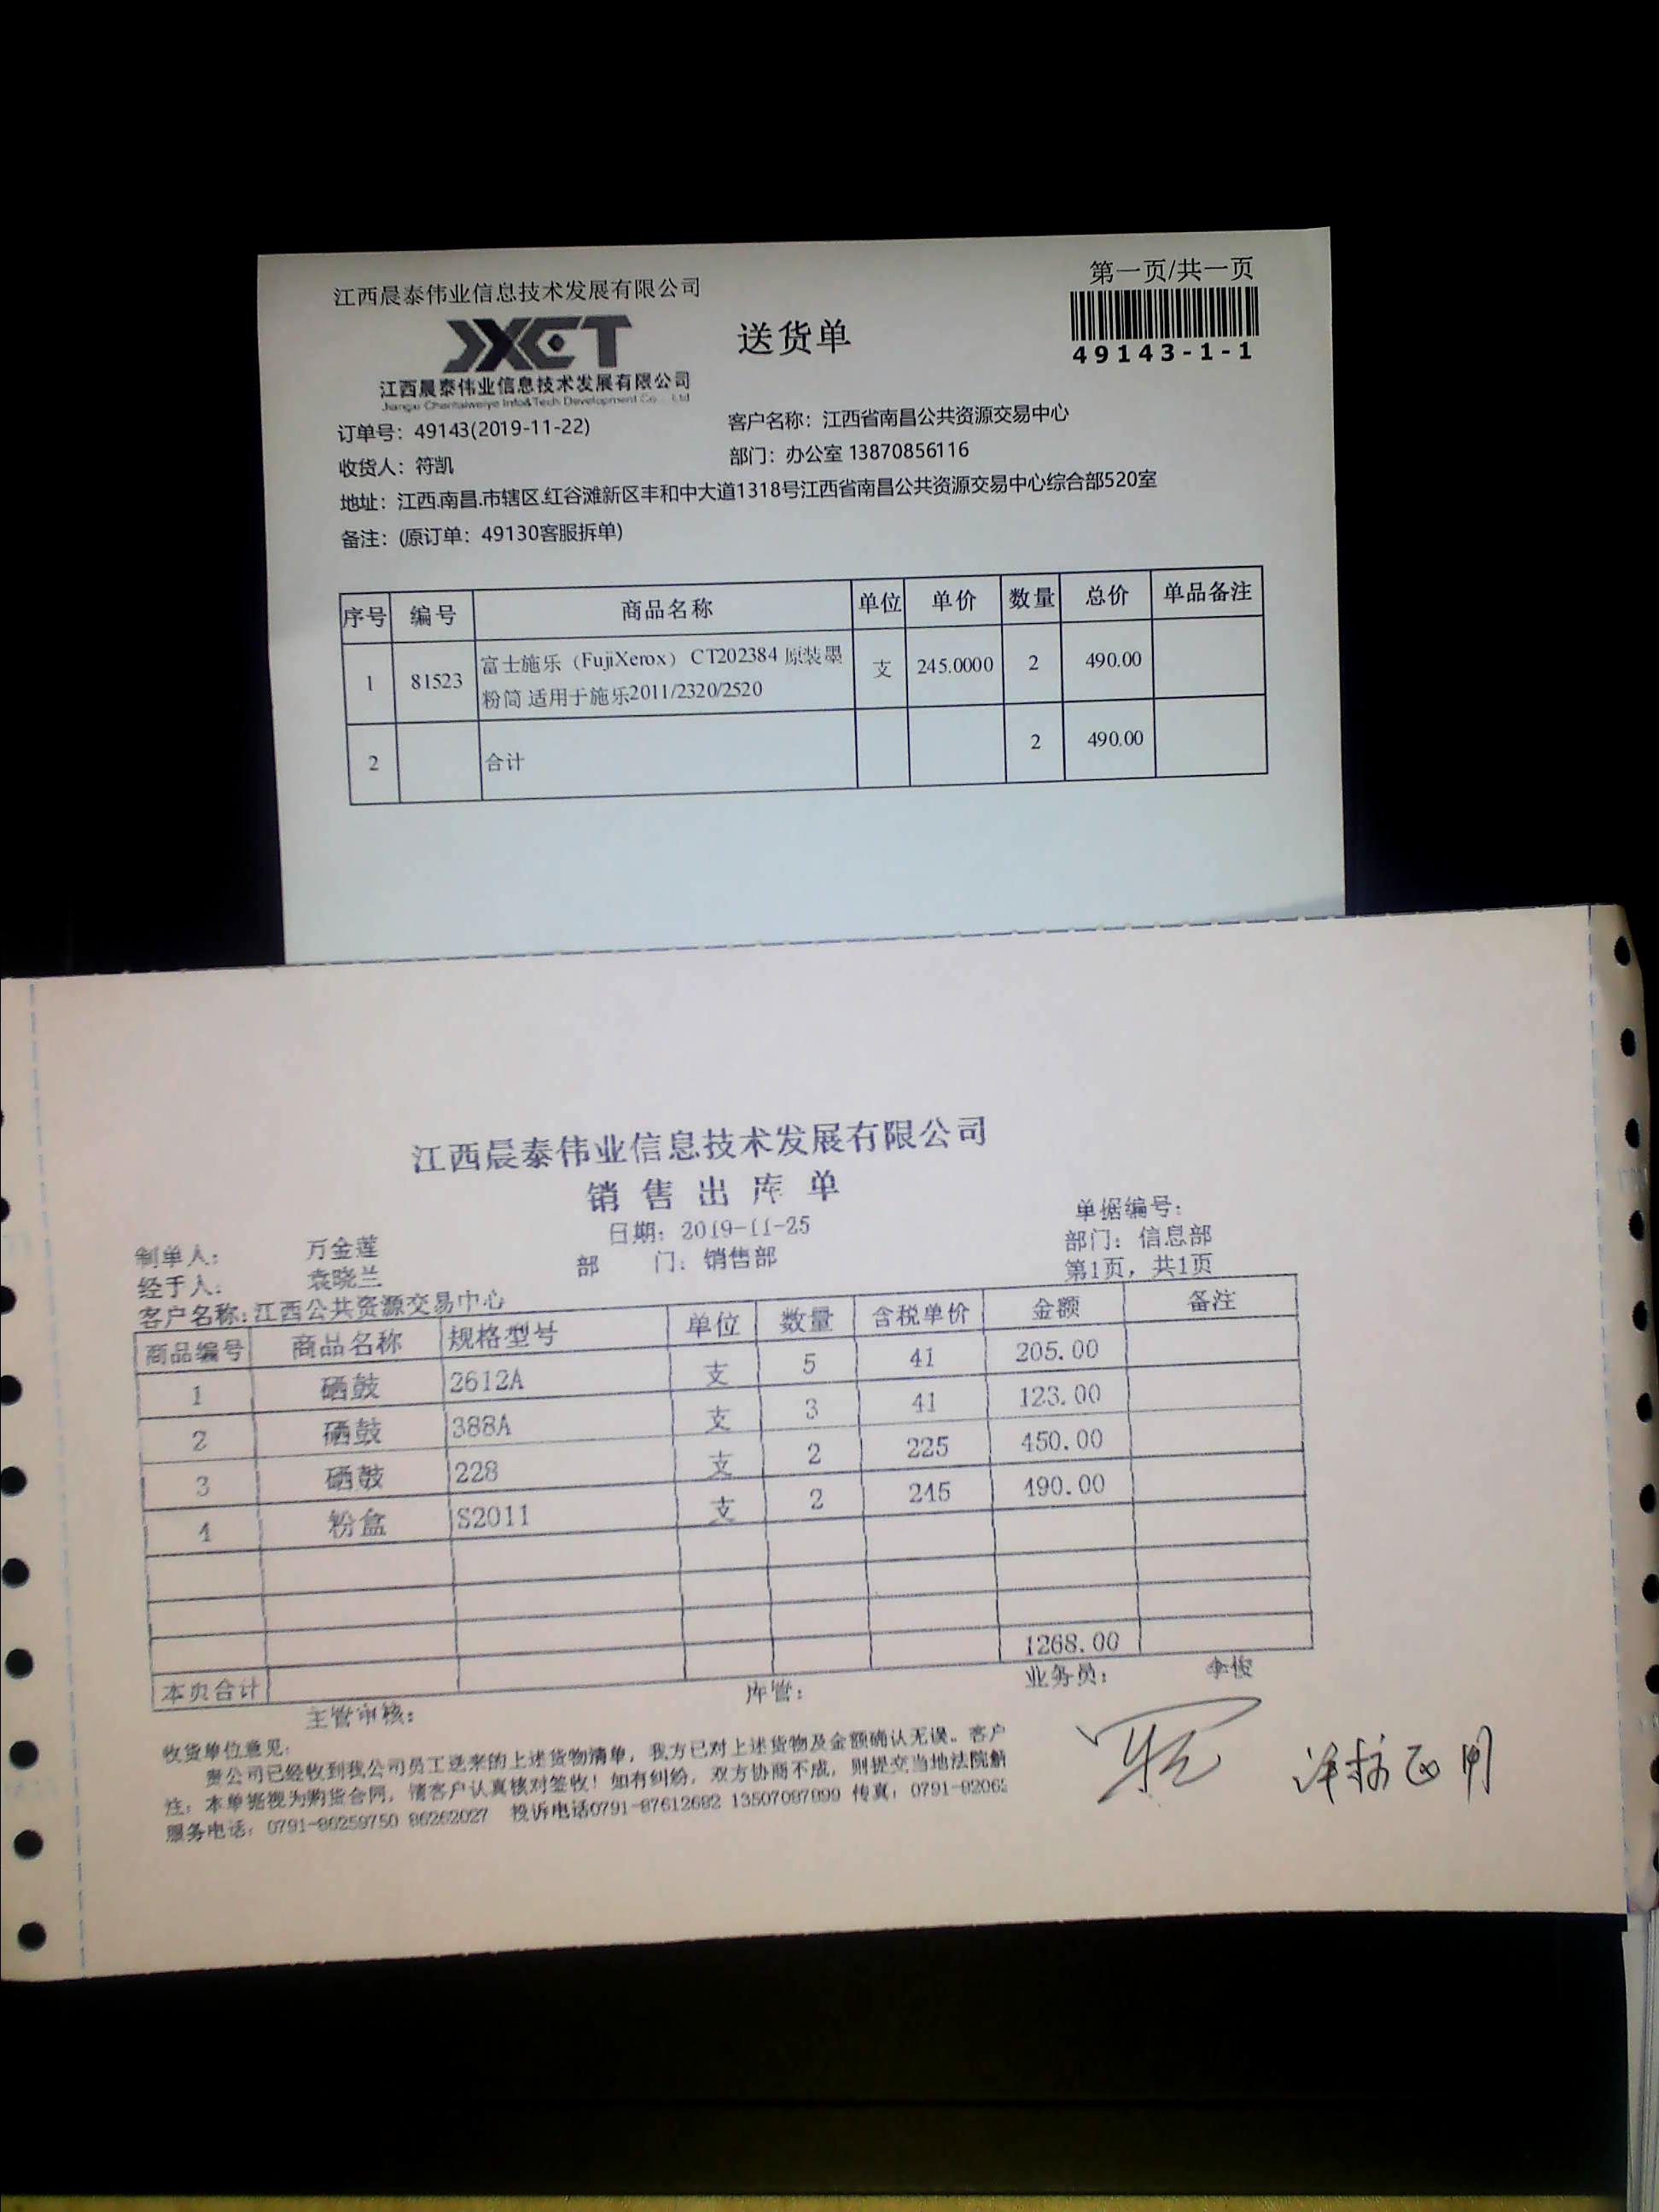 江西晨泰伟业信息技术发展有限公司
第一页/共一页
JXCT
送货单
49143-1-1
江西晨泰伟业信息技术发展有限公司
Jiangxi Chentaiweiye Info&Tech Development Co., Ltd
订单号：49143(2019-11-22) 客户名称：江西省南昌公共资源交易中心
收货人：符凯 部门：办公室 13870856116
地址：江西.南昌.市辖区.红谷滩新区丰和中大道1318号江西省南昌公共资源交易中心综合部520室
备注：(原订单：49130客服拆单)
序号 编号 商品名称 单位 单价 数量 总价 单品备注
1 81523 富士施乐（FujiXerox） CT202384 原装墨 支 245.0000 2 490.00
粉筒 适用于施乐2011/2320/2520
2 合计 2 490.00
江西晨泰伟业信息技术发展有限公司
销售出库单
制单人： 万金莲 日期：2019-11-25 单据编号：
经手人： 袁晓兰 部 门：销售部 部门：信息部
客户名称：江西公共资源交易中心 第1页，共1页
商品编号 商品名称 规格型号 单位 数量 含税单价 金额 备注
1 硒鼓 2612A 支 5 41 205.00
2 硒鼓 388A 支 3 41 123.00
3 硒鼓 228 支 2 225 450.00
4 粉盒 S2011 支 2 245 490.00
本页合计 1268.00
主管审核： 库管： 业务员：
收货单位意见：
贵公司已经收到我公司员工送来的上述货物清单，我方已对上述货物及金额确认无误。客户
注：本单据视为购货合同，请客户认真核对签收！如有纠纷，双方协商不成，则提交当地法院解
服务电话：0791-86259750 86262027 投诉电话0791-87612682 13507097099 传真：0791-82062